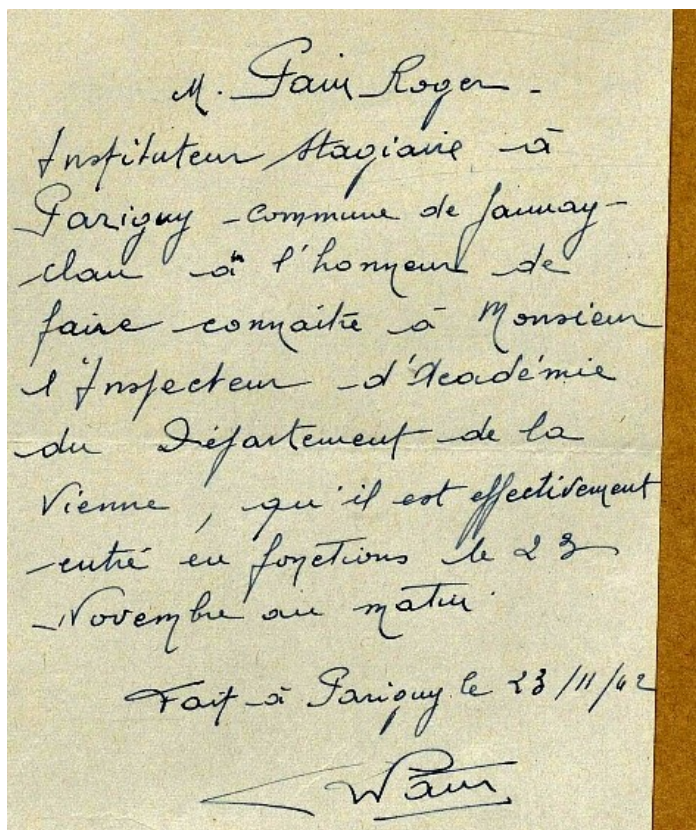 M. Pain Roger -
Instituteur stagiaire à
Parigny - commune de Jaunay-
clan à l'honneur de
faire connaitre à Monsieur
l'Inspecteur d'Académie
du Département de la
Vienne, qu'il est effectivement
entré en fonctions le 23
Novembre au matin.
Fait à Parigny le 23/11/42
Pain